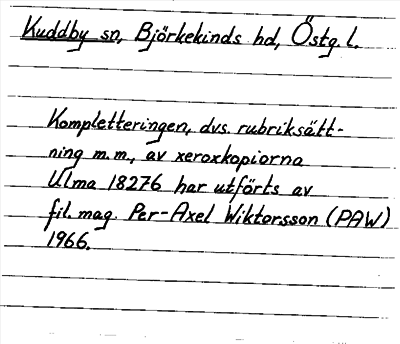 Kuddby sn, Björkekinds hd, Östg. l.
Kompletteringen, dvs. rubriksätt-
ning m.m., av xeroxkopiorna
Ulma 18276 har utförts av
fil. mag. Per-Axel Wiktorsson (PAW)
1966.